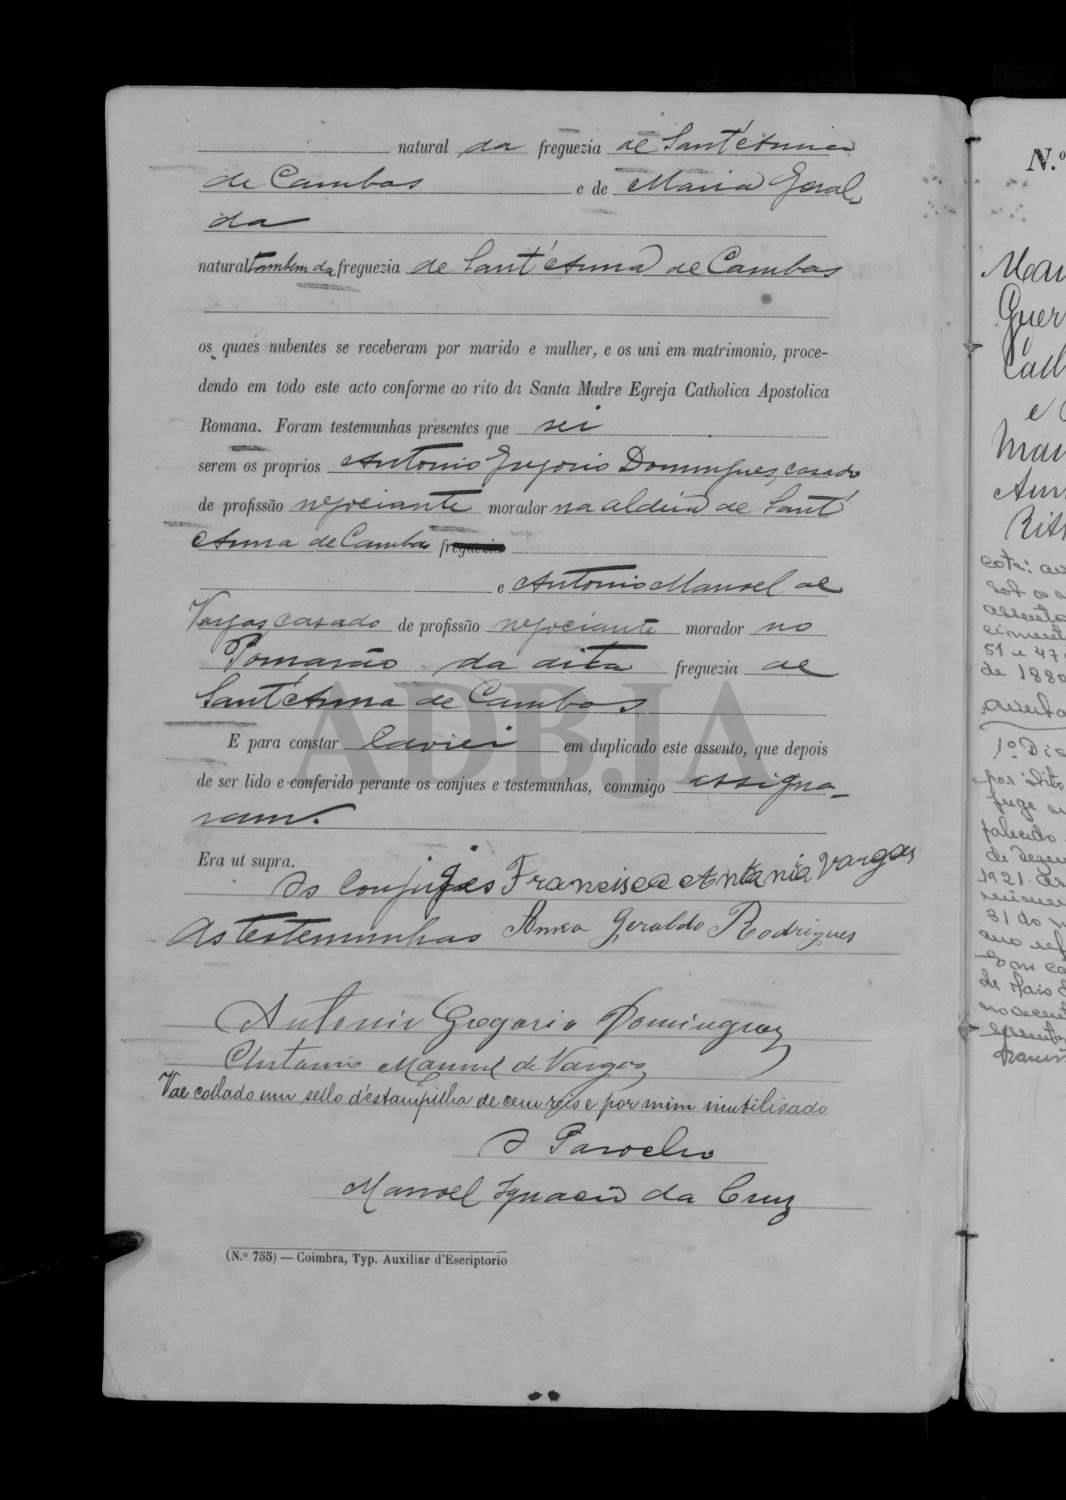 natural da freguezia de Sant'Anna
de Cambas e de Maria Geral-
da
natural tambem da freguezia de Sant'Anna de Cambas
os quaes nubentes se receberam por marido e mulher, e os uni em matrimonio, proce-
dendo em todo este acto conforme ao rito da Santa Madre Egreja Catholica Apostolica
Romana. Foram testemunhas presentes que sei
serem os proprios Antonio Gregorio Domingues, casado
de profissão negociante morador na aldeia de Sant'
Anna de Cambas freguezia
e Antonio Manoel de
Vargas, casado de profissão negociante morador no
Pomarão da dita freguezia de
Sant'Anna de Cambas
E para constar lavrei em duplicado este assento, que depois
de ser lido e conferido perante os conjues e testemunhas, commigo assigna-
ram.
Era ut supra.
Os conjuges Francisca Antonia Vargas
As testemunhas Geraldo Rodrigues
Antonio Gregorio Domingues
Antonio Manuel de Vargas
Vae collado um sello d'estampilha de cem reis e por mim inutilisado
O Parocho
Manoel Ignacio da Cruz
(N.º 755) — Coimbra, Typ. Auxiliar d'Escriptorio
ADBJA
N.º
Guer
e
51 e 47
de 1880
1º
por
juge
de
1921.
31 do
de Maio